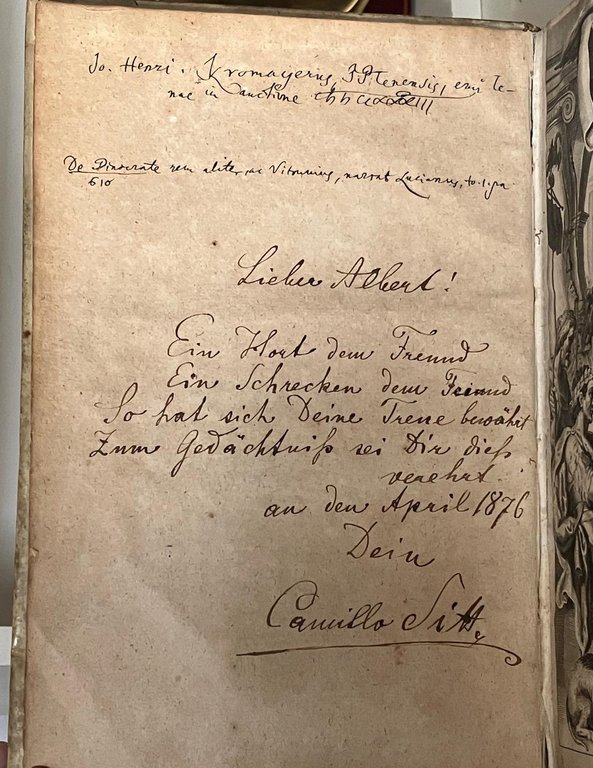 Jo. Henri. Kromayerus, P.P. Jenensis, emi Je-
nae in Auctione
De Dinocrate rem aliter, ac Vitruvius, narrat Lucianus, to. 1. pa
610
Lieber Albert!
Ein Hort dem Freund
Ein Schrecken dem Feind
So hat sich Deine Treue bewährt
Zum Gedächtniß sei Dir dieß
verehrt
an den April 1876
Dein
Camillo Sitte